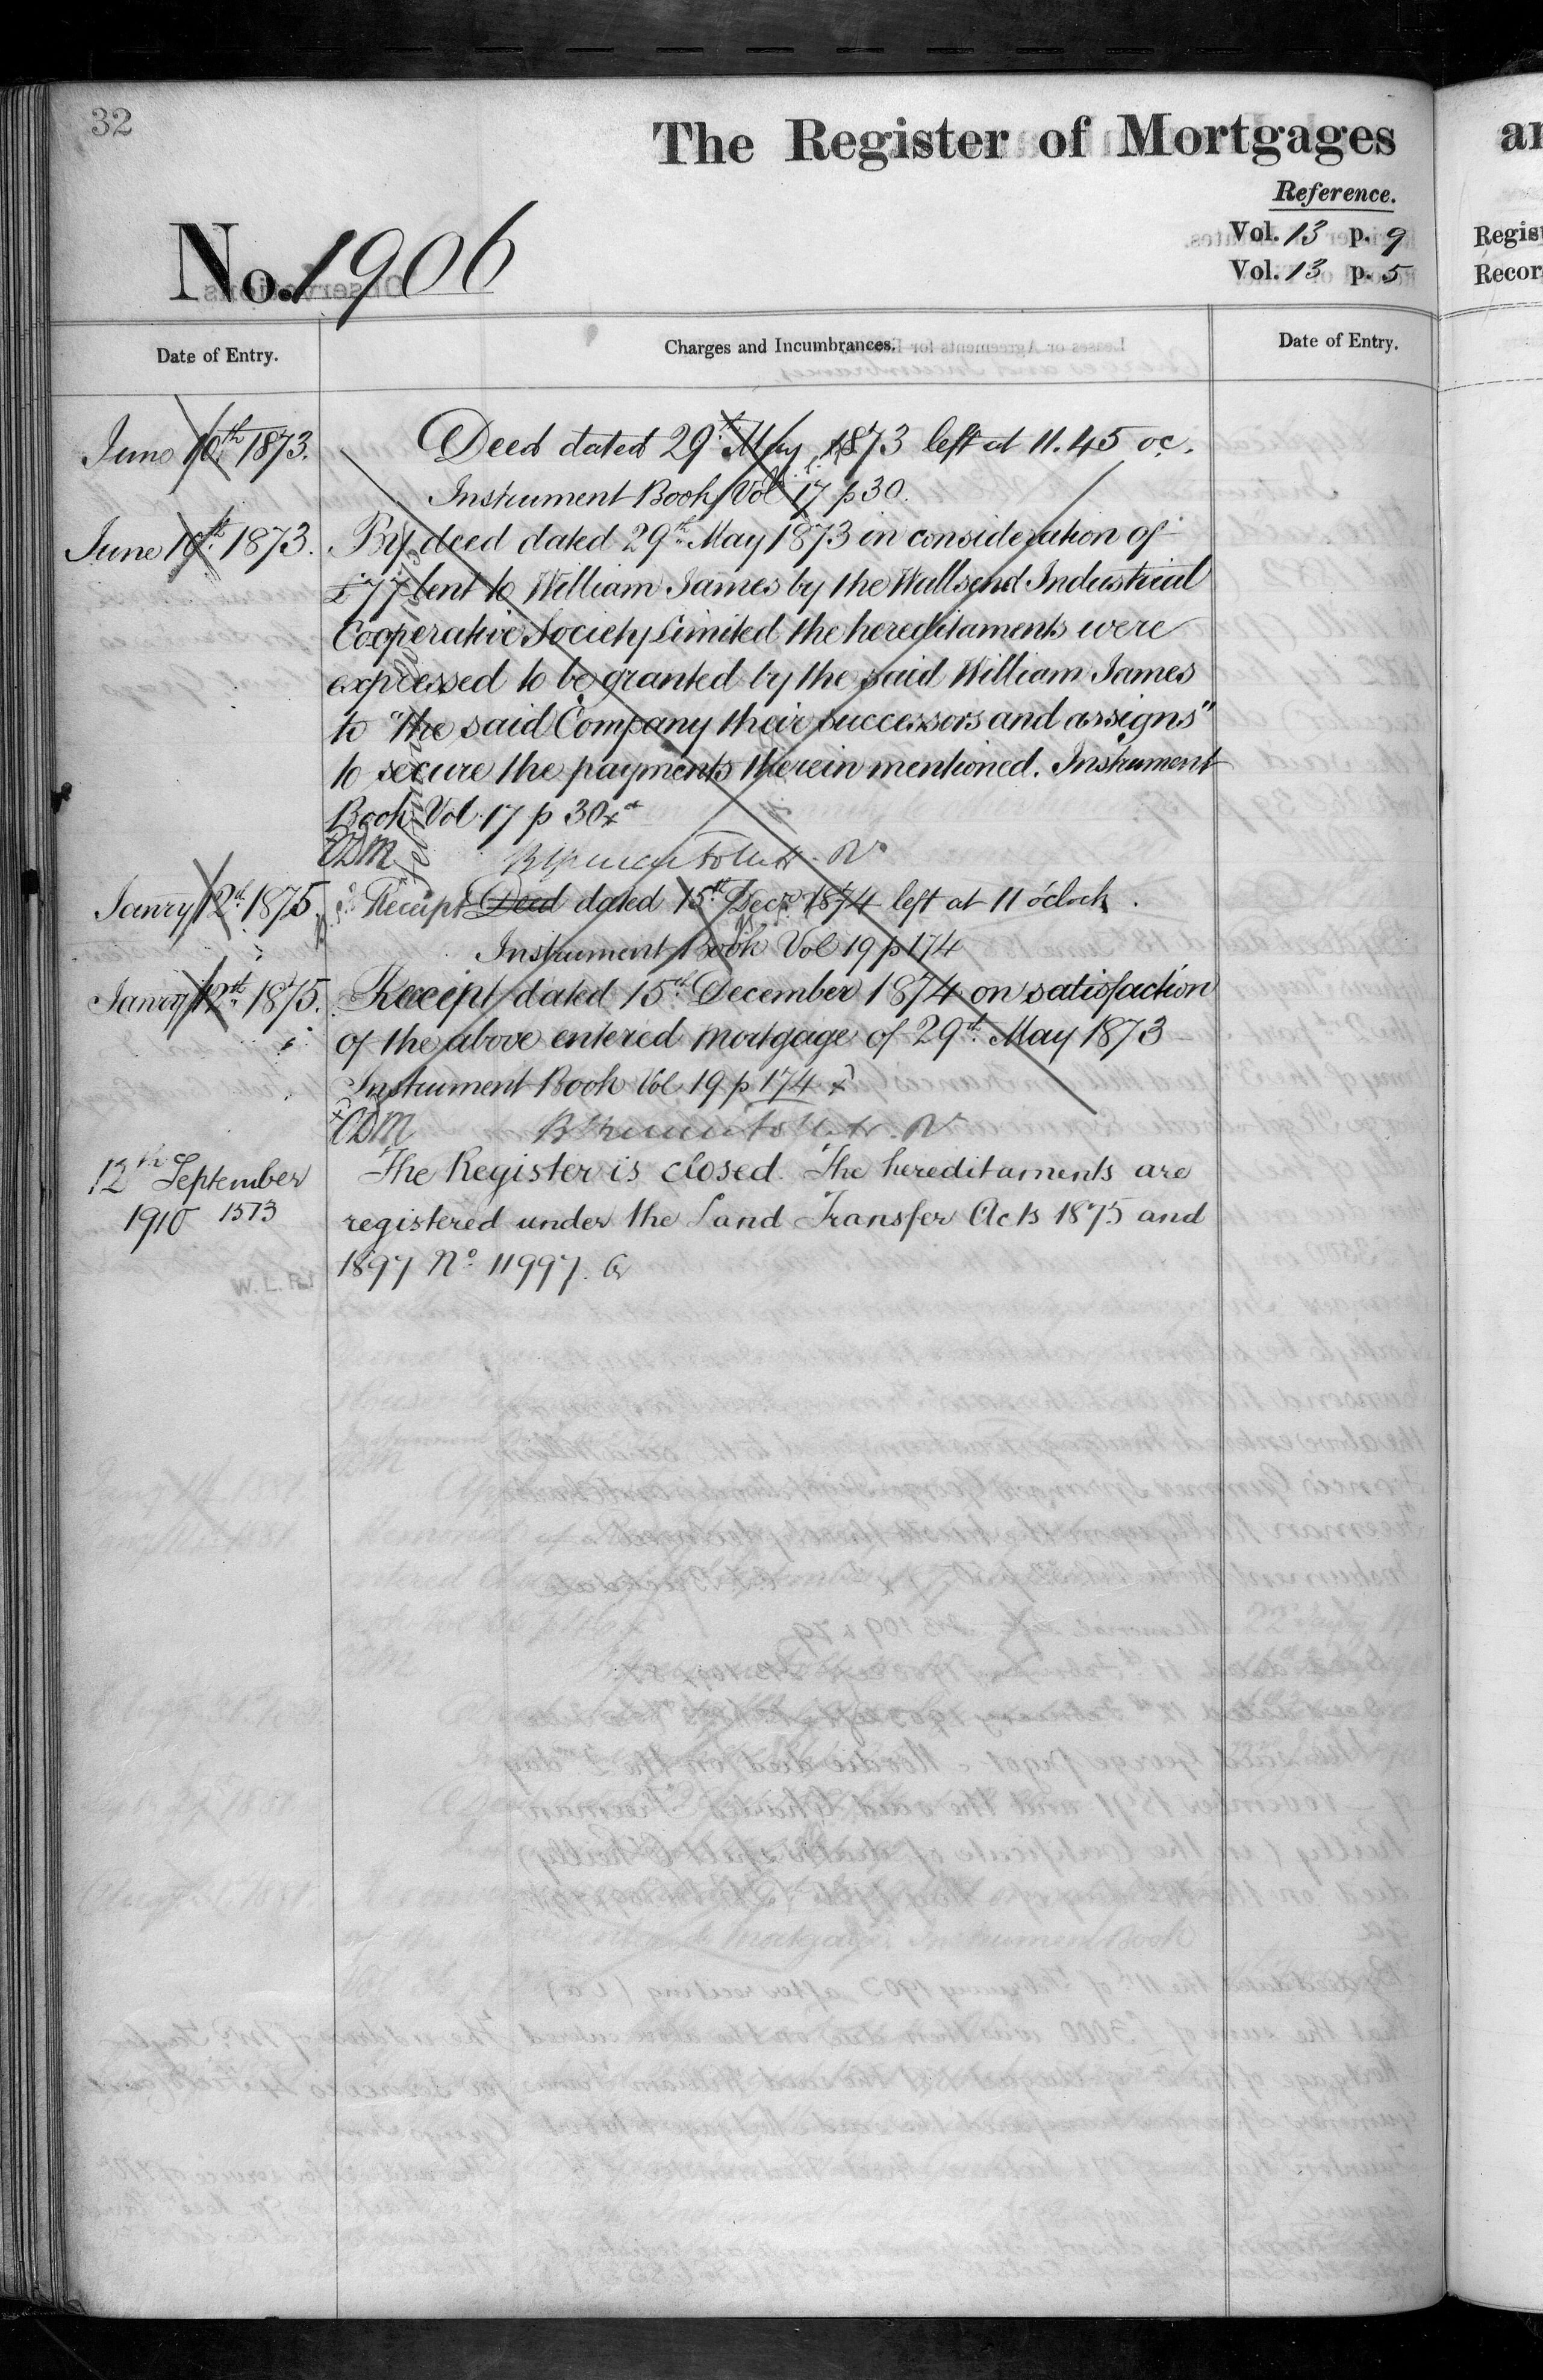 32
The Register of Mortgages
Reference.
Vol. 13 p. 9
Vol. 13 p. 5
No. 1906
Regis
Recor
Date of Entry.
Charges and Incumbrances.
Date of Entry.
June 10th 1873.
Deed dated 29th May 1873 left at 11.45 oc.
Instrument Book Vol 17 p 30.
June 10th 1873.
By deed dated 29th May 1873 in consideration of
£77 lent to William James by the Wallsend Industrial
Cooperative Society Limited the hereditaments were
expressed to be granted by the said William James
to "the said Company their successors and assigns"
to secure the payments therein mentioned. Instrument
Book Vol 17 p 30 x
CDM
Janry 12th 1875
Receipt Deed dated 15th Decr 1874 left at 11 o'clock.
Instrument Book Vol 19 p 174
Janry 12th 1875.
Receipt dated 15th December 1874 on satisfaction
of the above entered mortgage of 29th May 1873
Instrument Book Vol 19 p 174 x
x CDM
12th September
1910 1573
The Register is closed. The hereditaments are
registered under the Land Transfer Acts 1875 and
1897 No 11997.